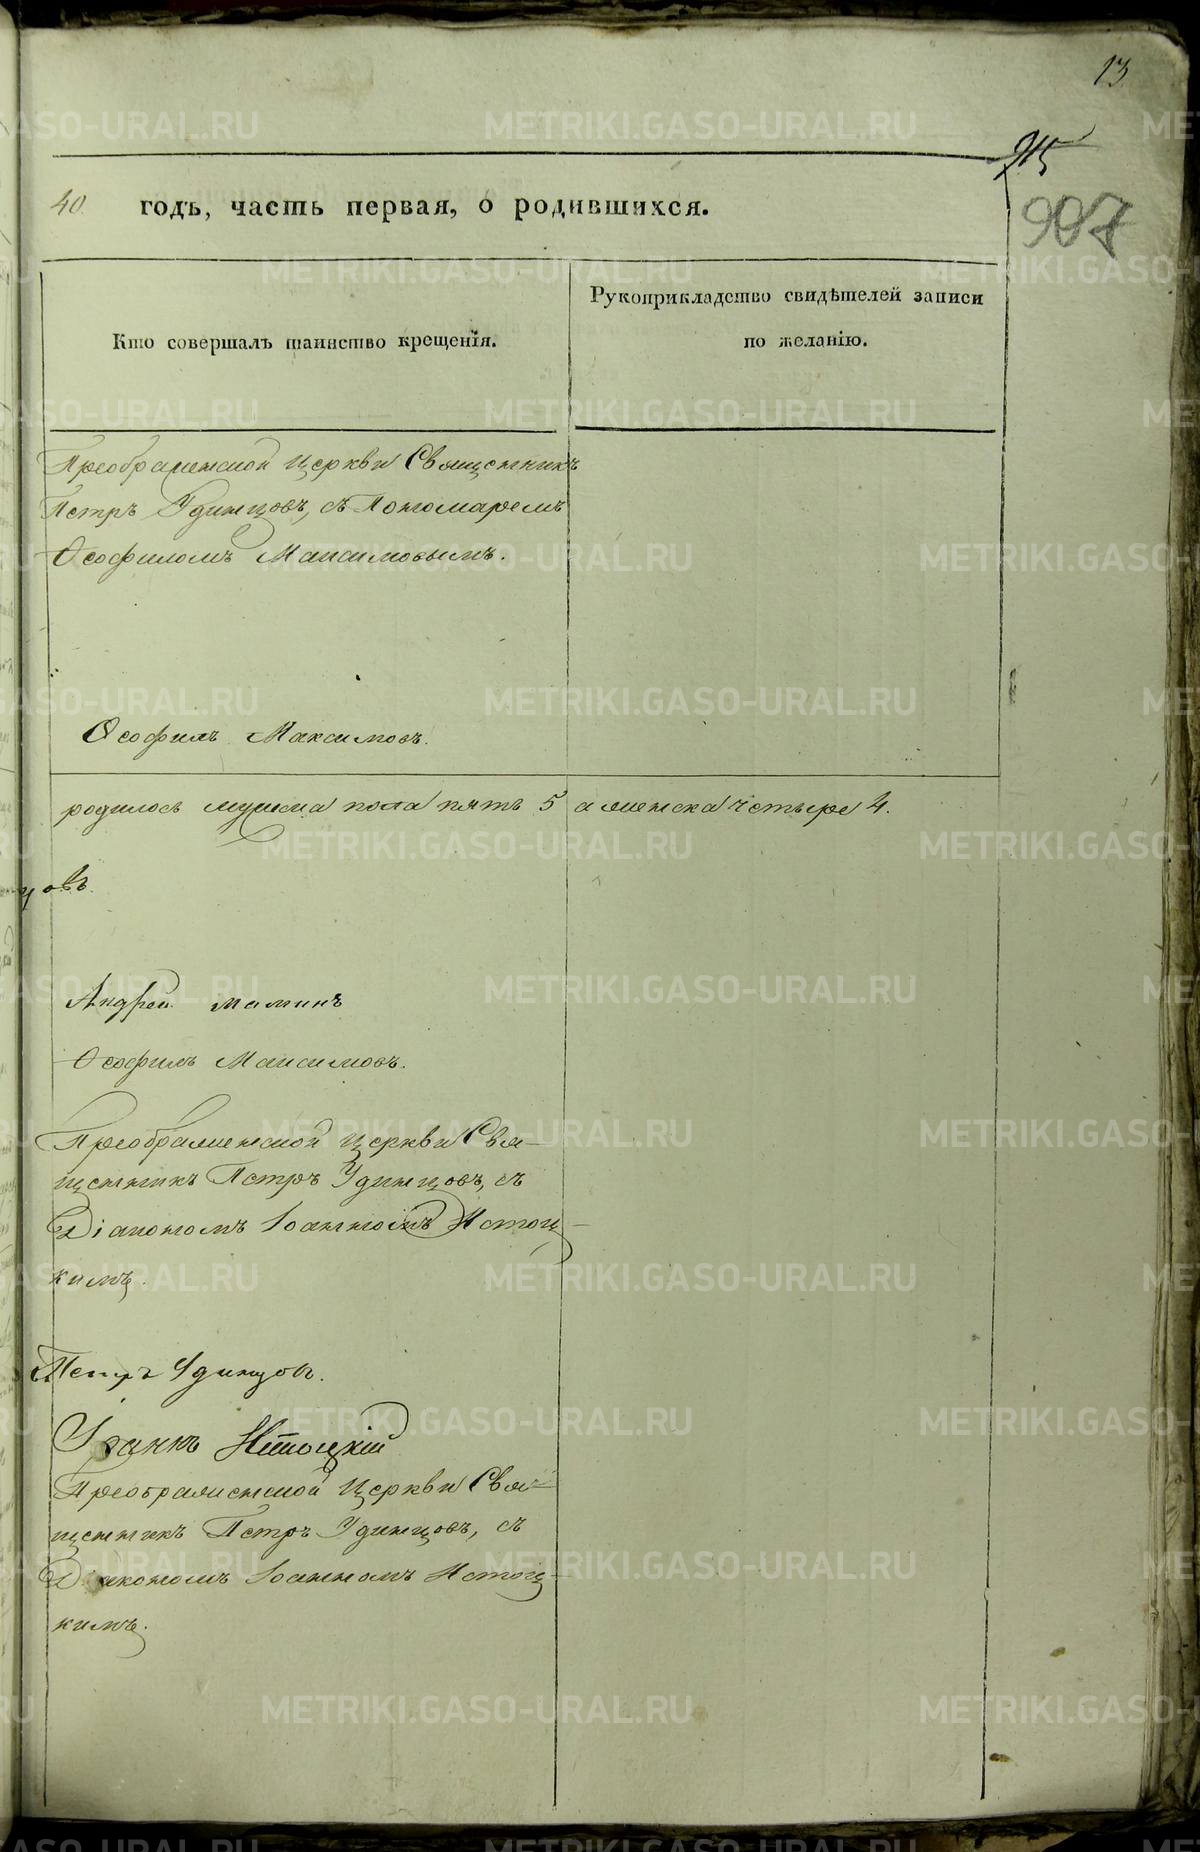 13
907
40 годъ, часть первая, о родившихся.
Кто совершалъ таинство крещенія.
Рукоприкладство свидѣтелей записи
по желанію.
Преображенской Церкви Священникъ
Петръ Удинцовъ, съ Пономаремъ
Ѳеофиломъ Максимовымъ.
Ѳеофилъ Максимовъ.
родилось мужска пола пять 5 а женска четыре 4.
цовъ.
Андрей Маминъ
Ѳеофилъ Максимовъ.
Преображенской Церкви Свя-
щенникъ Петръ Удинцовъ, съ
Діакономъ Іоанномъ Истоц-
кимъ.
Петръ Удинцовъ.
Іоаннъ Истоцкій
Преображенской Церкви Свя-
щенникъ Петръ Удинцовъ, съ
Діакономъ Іоанномъ Истоц-
кимъ.
METRIKI.GASO-URAL.RU